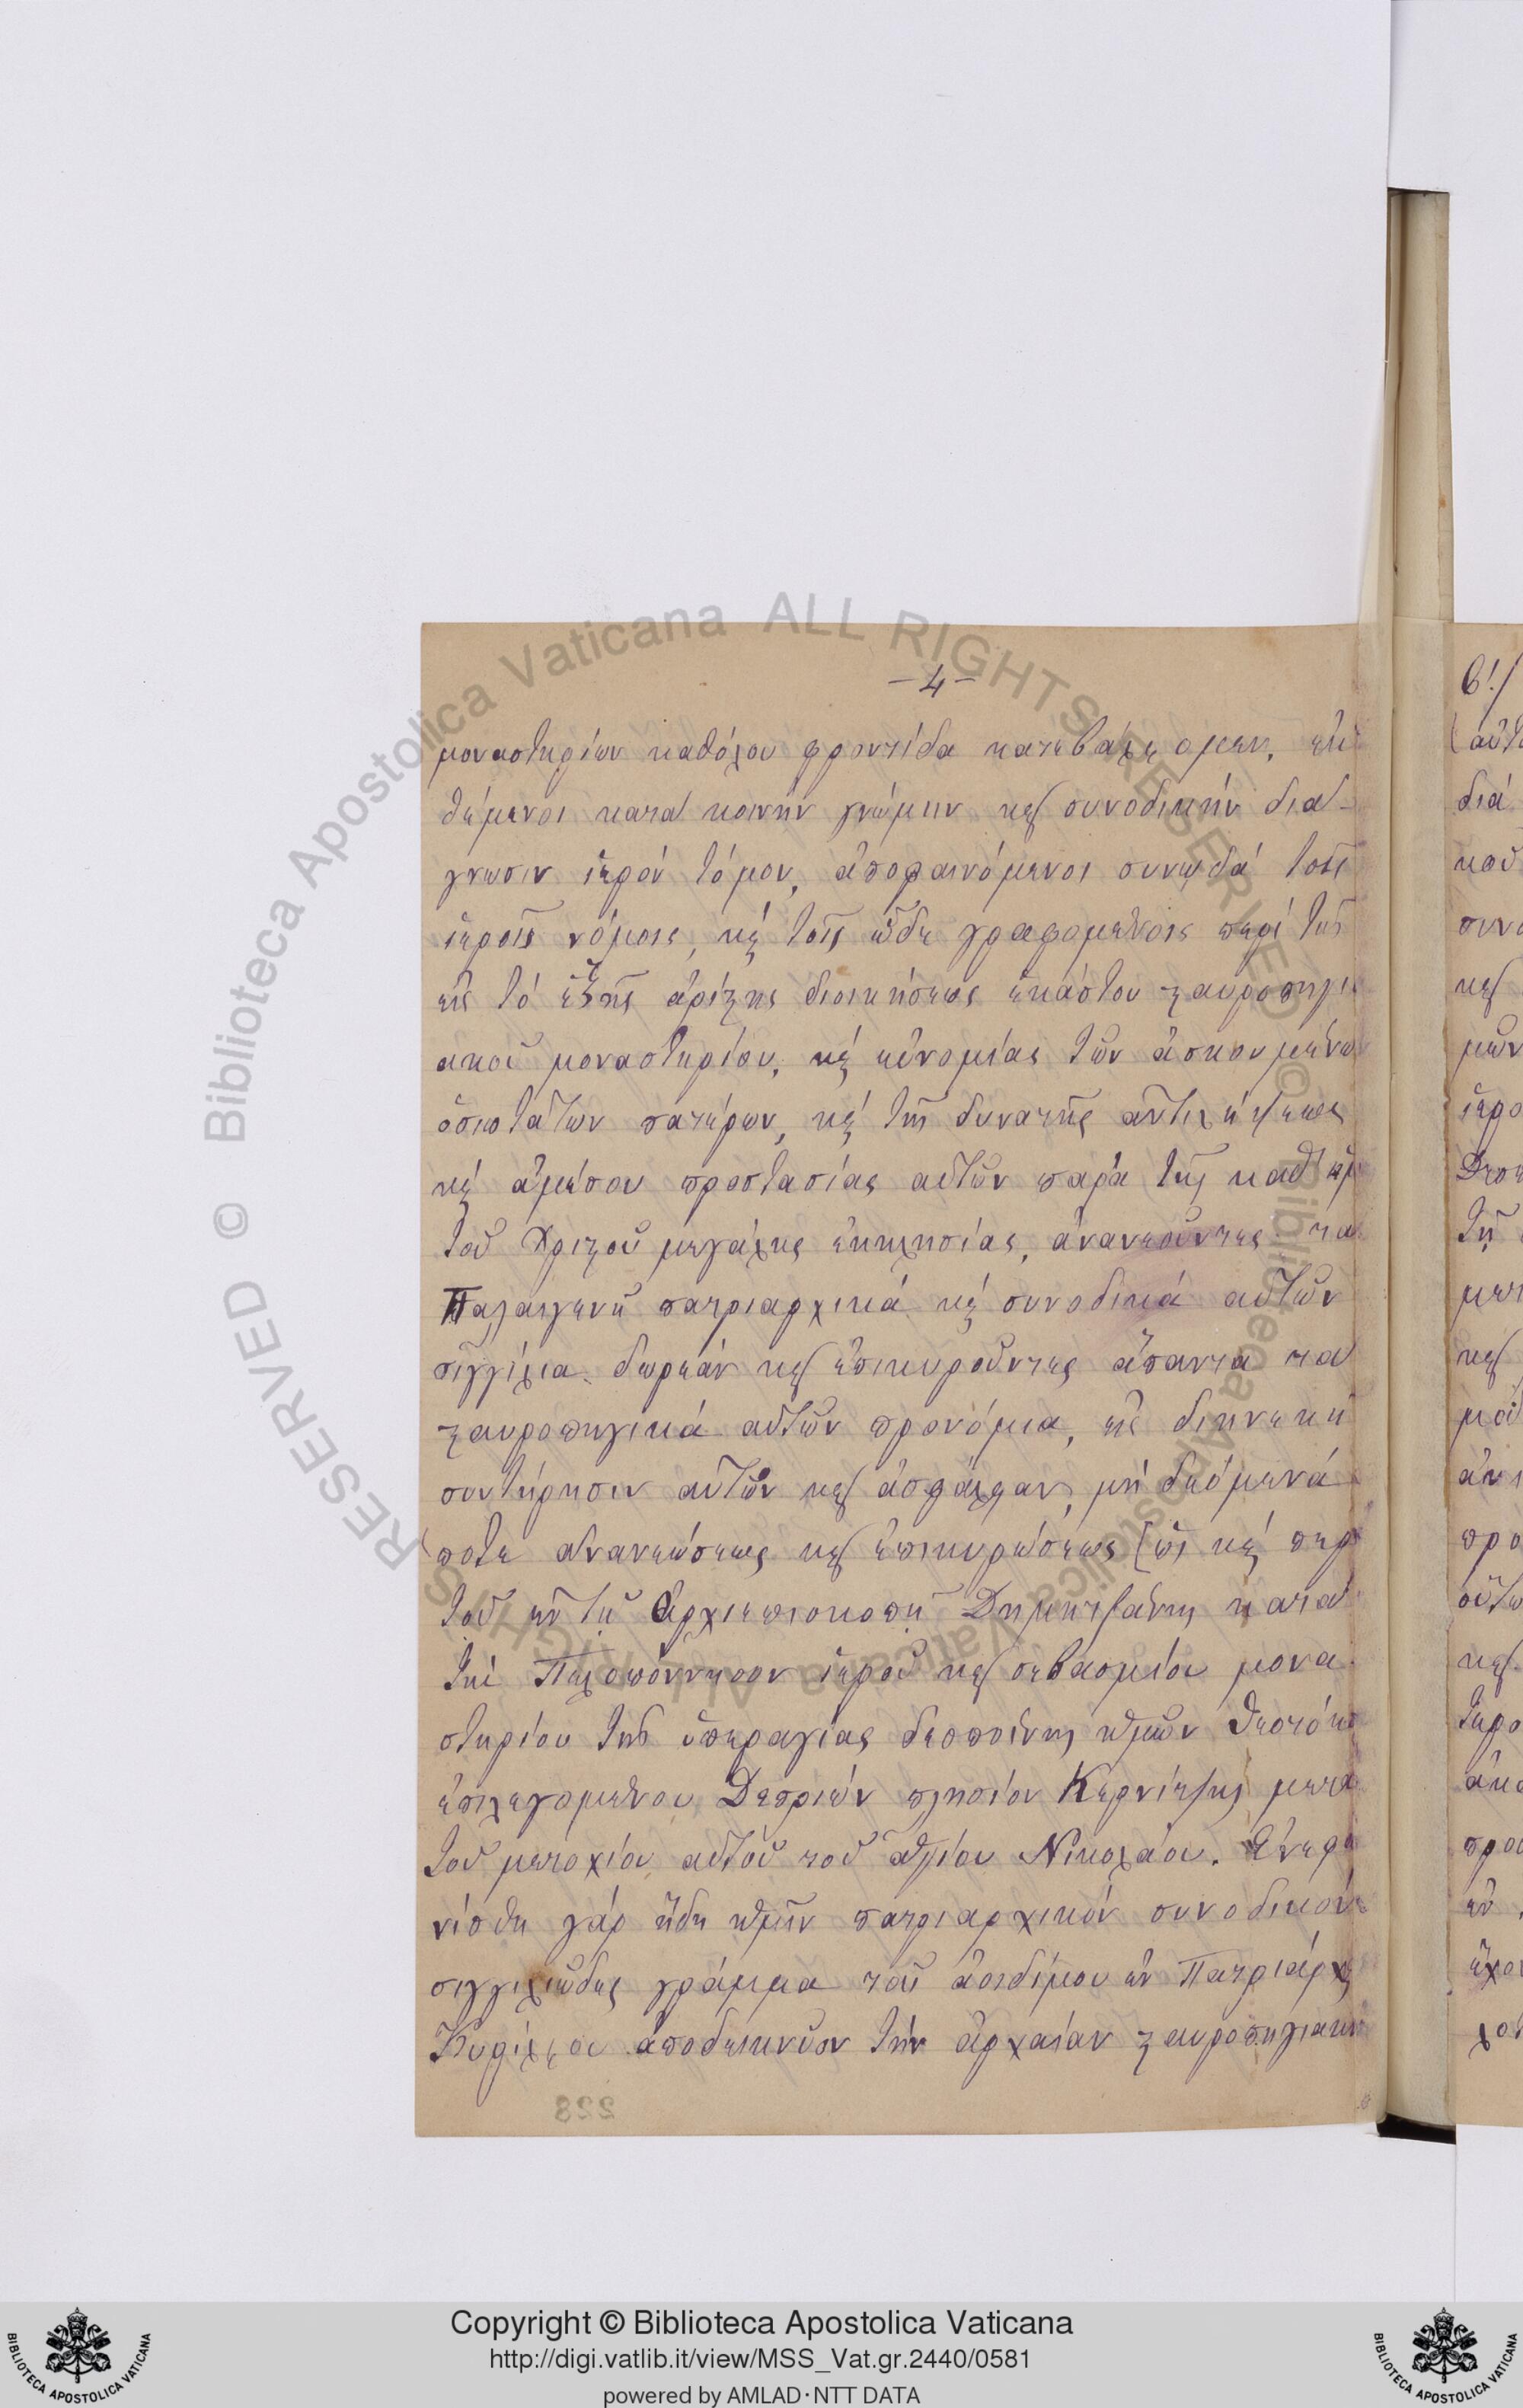 -4-
μοναστηρίων καθόλου φροντίδα κατεβάλλομεν, ἐκ
θέμενοι κατὰ κοινὴν γνώμην κ̀ συνοδικὴν διά-
γνωσιν ἱερὸν τόμον, ἀποφαινόμενοι συνῳδά τοῖς
ἱεροῖς νόμοις, κ̀ τοῖς ὧδε γραφομένοις περὶ τῆς
εἰς τὸ ἑξῆς ἀρίστης διοικήσεως ἑκάστου σταυροπηγι
ακοῦ μοναστηρίου, κ̀ εὐνομίας τῶν ἀσκουμένων
ὁσιωτάτων πατέρων, κ̀ τῆς δυνατῆς ἀντιλήψεως
κ̀ ἀμέσου προστασίας αὐτῶν παρὰ τῆς καθ' ἡμ
τοῦ Χριστοῦ μεγάλης ἐκκλησίας, ἀνανεοῦντες τὰ
Παλαιγενῆ πατριαρχικά κ̀ συνοδικά αὐτῶν
σιγγίλια δωρεάν κ̀ ἐπικυροῦντες ἅπαντα τὰ
σταυροπηγικά αὐτῶν προνόμια, εἰς διηνεκῆ
συντήρησιν αὐτῶν κ̀ ἀσφάλειαν, μὴ δεόμενά
ποτε ἀνανεώσεως κ̀ ἐπικυρώσεως [ὡς κ̀ περὶ
τοῦ ἐν τῇ ἀρχιεπισκοπῇ Δημητσάνης κατὰ
τὴν Πελοπόννησον ἱεροῦ κ̀ σεβασμίου μονα
στηρίου τῆς ὑπεραγίας δεσποίνης ἡμῶν Θεοτόκου
ἐπιλεγομένου πλησίον Κερνίτσης μετὰ
τοῦ μετοχίου αὐτοῦ τοῦ ἁγίου Νικολάου. Ἐνεφα
νίσθη γάρ ἤδη ἡμῖν πατριαρχικὸν συνοδικόν
σιγγιλιῶδες γράμμα τοῦ ἀοιδίμου ἐν Πατριάρχαις
Κυρίλλου ἀποδεικνῦον τὴν ἀρχαίαν σταυροπηγιακήν
223
β'./
διά
κ̀
μῶν
ἱερο
τῇ
κ̀
προ
κ̀
Copyright © Biblioteca Apostolica Vaticana
http://digi.vatlib.it/view/MSS_Vat.gr.2440/0581
powered by AMLAD·NTT DATA
BIBLIOTECA APOSTOLICA VATICANA
BIBLIOTECA APOSTOLICA VATICANA
© Biblioteca Apostolica Vaticana ALL RIGHTS RESERVED
© Biblioteca Apostolica Vaticana ALL RIGHTS RESERVED